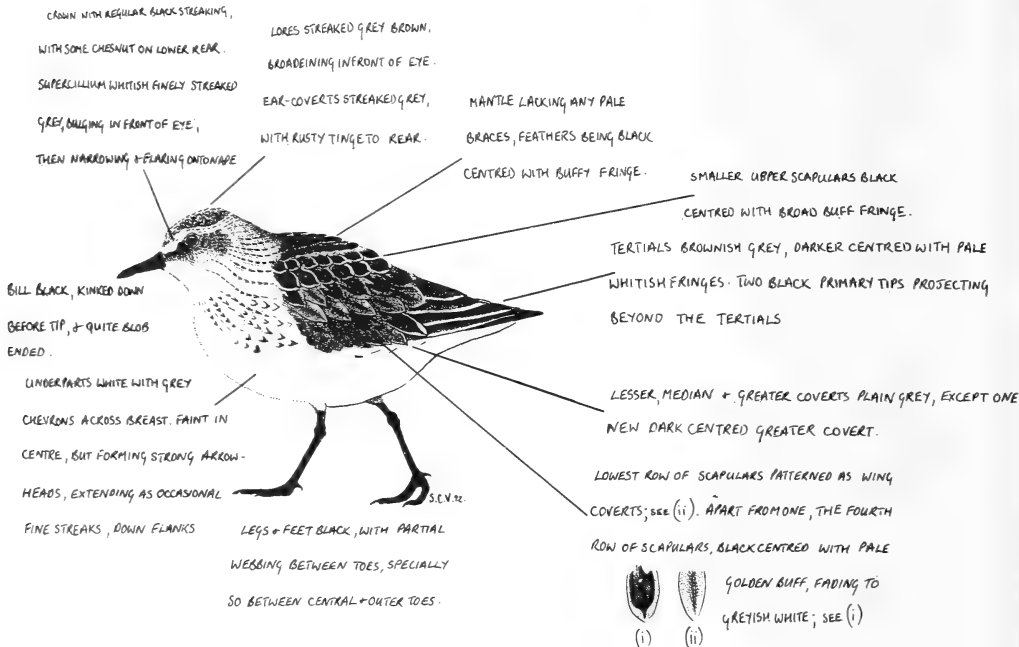 CROWN WITH REGULAR BLACK STREAKING,
WITH SOME CHESNUT ON LOWER REAR.
SUPERCILLIUM WHITISH FINELY STREAKED
GREY, BULGING IN FRONT OF EYE,
THEN NARROWING + FLARING ONTO NAPE
LORES STREAKED GREY BROWN,
BROADEINING IN FRONT OF EYE.
EAR-COVERTS STREAKED GREY,
WITH RUSTY TINGE TO REAR.
MANTLE LACKING ANY PALE
BRACES, FEATHERS BEING BLACK
CENTRED WITH BUFFY FRINGE.
SMALLER UPPER SCAPULARS BLACK
CENTRED WITH BROAD BUFF FRINGE.
TERTIALS BROWNISH GREY, DARKER CENTRED WITH PALE
WHITISH FRINGES. TWO BLACK PRIMARY TIPS PROJECTING
BEYOND THE TERTIALS
BILL BLACK, KINKED DOWN
BEFORE TIP, + QUITE BLOB
ENDED.
UNDERPARTS WHITE WITH GREY
CHEVRONS ACROSS BREAST. FAINT IN
CENTRE, BUT FORMING STRONG ARROW-
HEADS, EXTENDING AS OCCASIONAL
FINE STREAKS, DOWN FLANKS
S.C.V. 92.
LEGS + FEET BLACK, WITH PARTIAL
WEBBING BETWEEN TOES, SPECIALLY
SO BETWEEN CENTRAL + OUTER TOES.
LESSER, MEDIAN + GREATER COVERTS PLAIN GREY, EXCEPT ONE
NEW DARK CENTRED GREATER COVERT.
LOWEST ROW OF SCAPULARS PATTERNED AS WING
COVERTS; SEE (ii). APART FROM ONE, THE FOURTH
ROW OF SCAPULARS, BLACK CENTRED WITH PALE
GOLDEN BUFF, FADING TO
GREYISH WHITE; SEE (i)
(i) (ii)